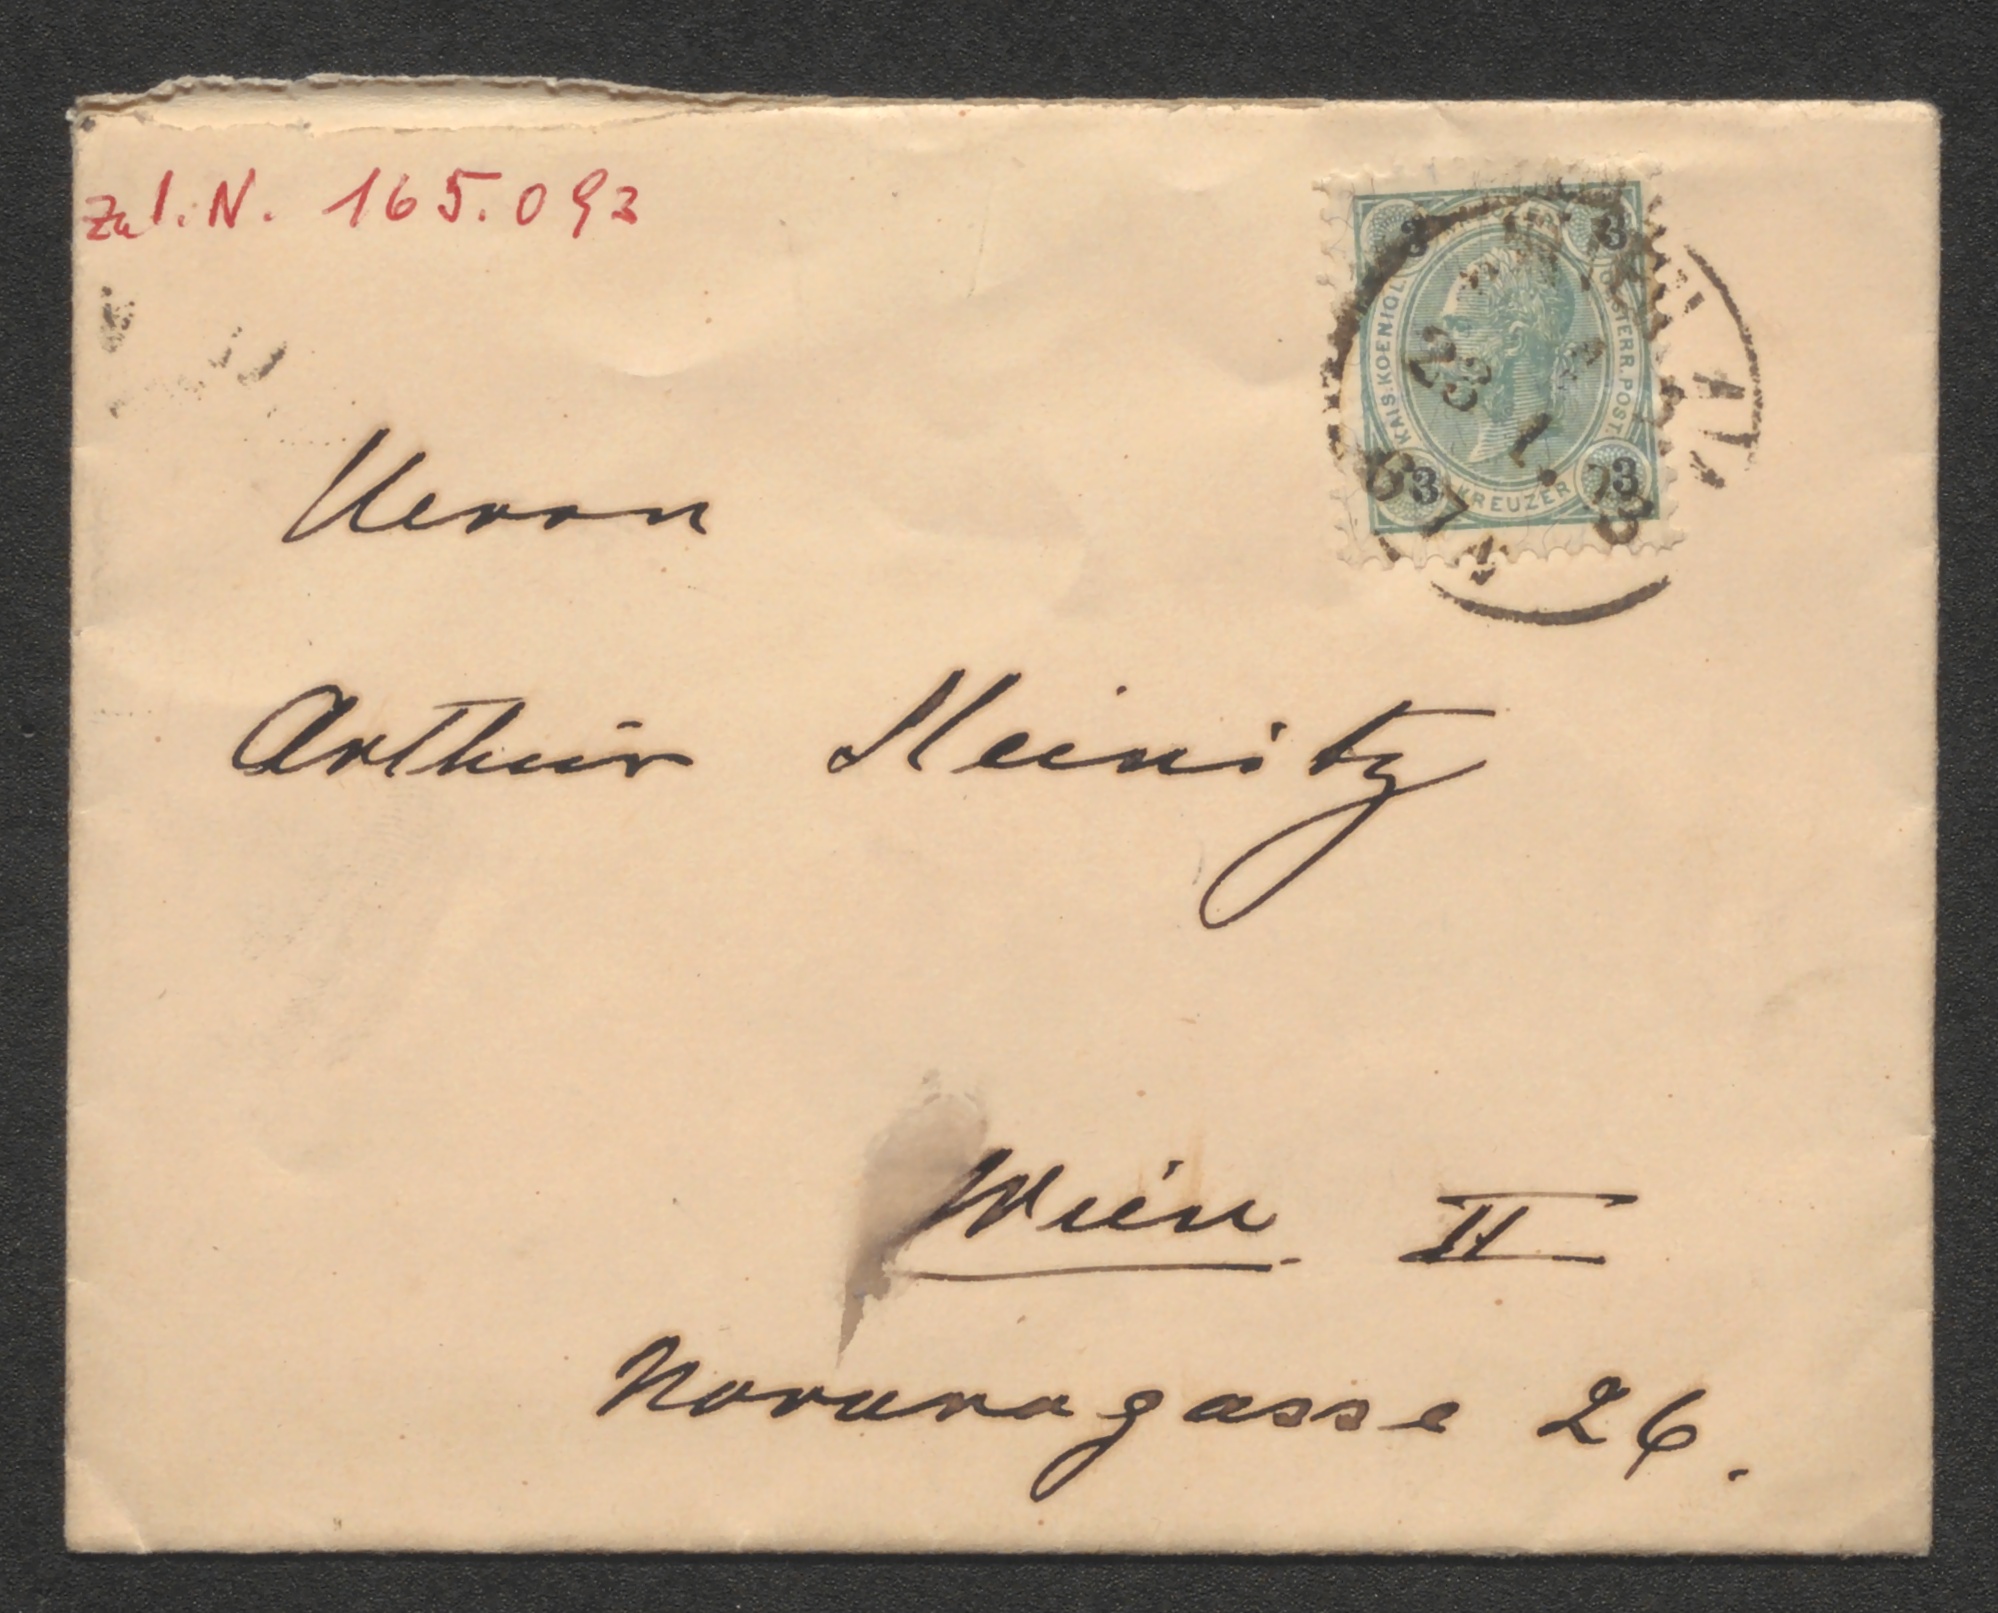 Zu I. N. 165.093
3 3
KAIS. KOENIGL. OESTERR. POST.
23 1.
97
3 KREUZER 3
Herrn
Arthur Heinitz
Wien II
Novaragasse 26.